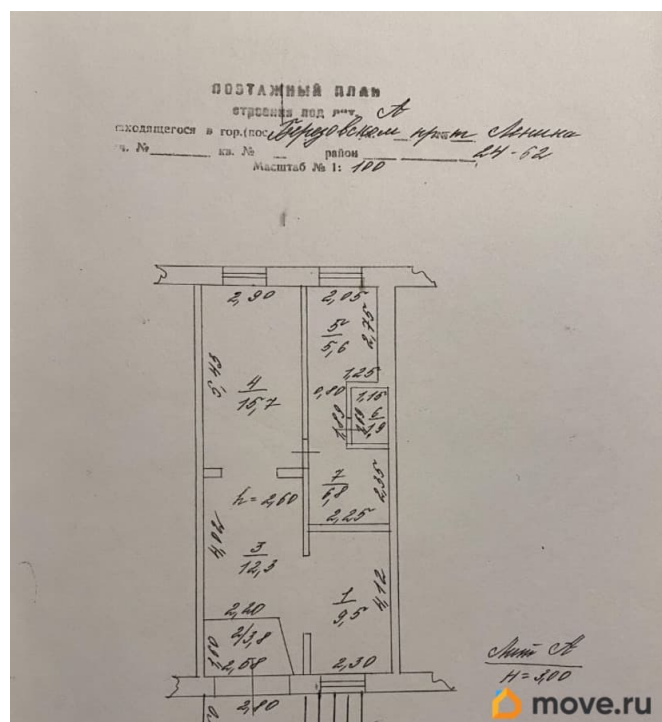 ПОЭТАЖНЫЙ ПЛАН
строения под лит. А
находящегося в гор.(пос Березовском пр-т Ленина
кв. № район 24-62
Масштаб № 1: 100
2,90 2,05
5
5,6
2,75
5,45
4
15,7
1,25
0,80 1,15
6
1,9
7
6,8
2,35
h=2,60
2,25
4,02
3
12,3
1
9,5
4,12
2,20
2/3,8
2,68 2,30
2,80
Лит А
H=3,00
move.ru